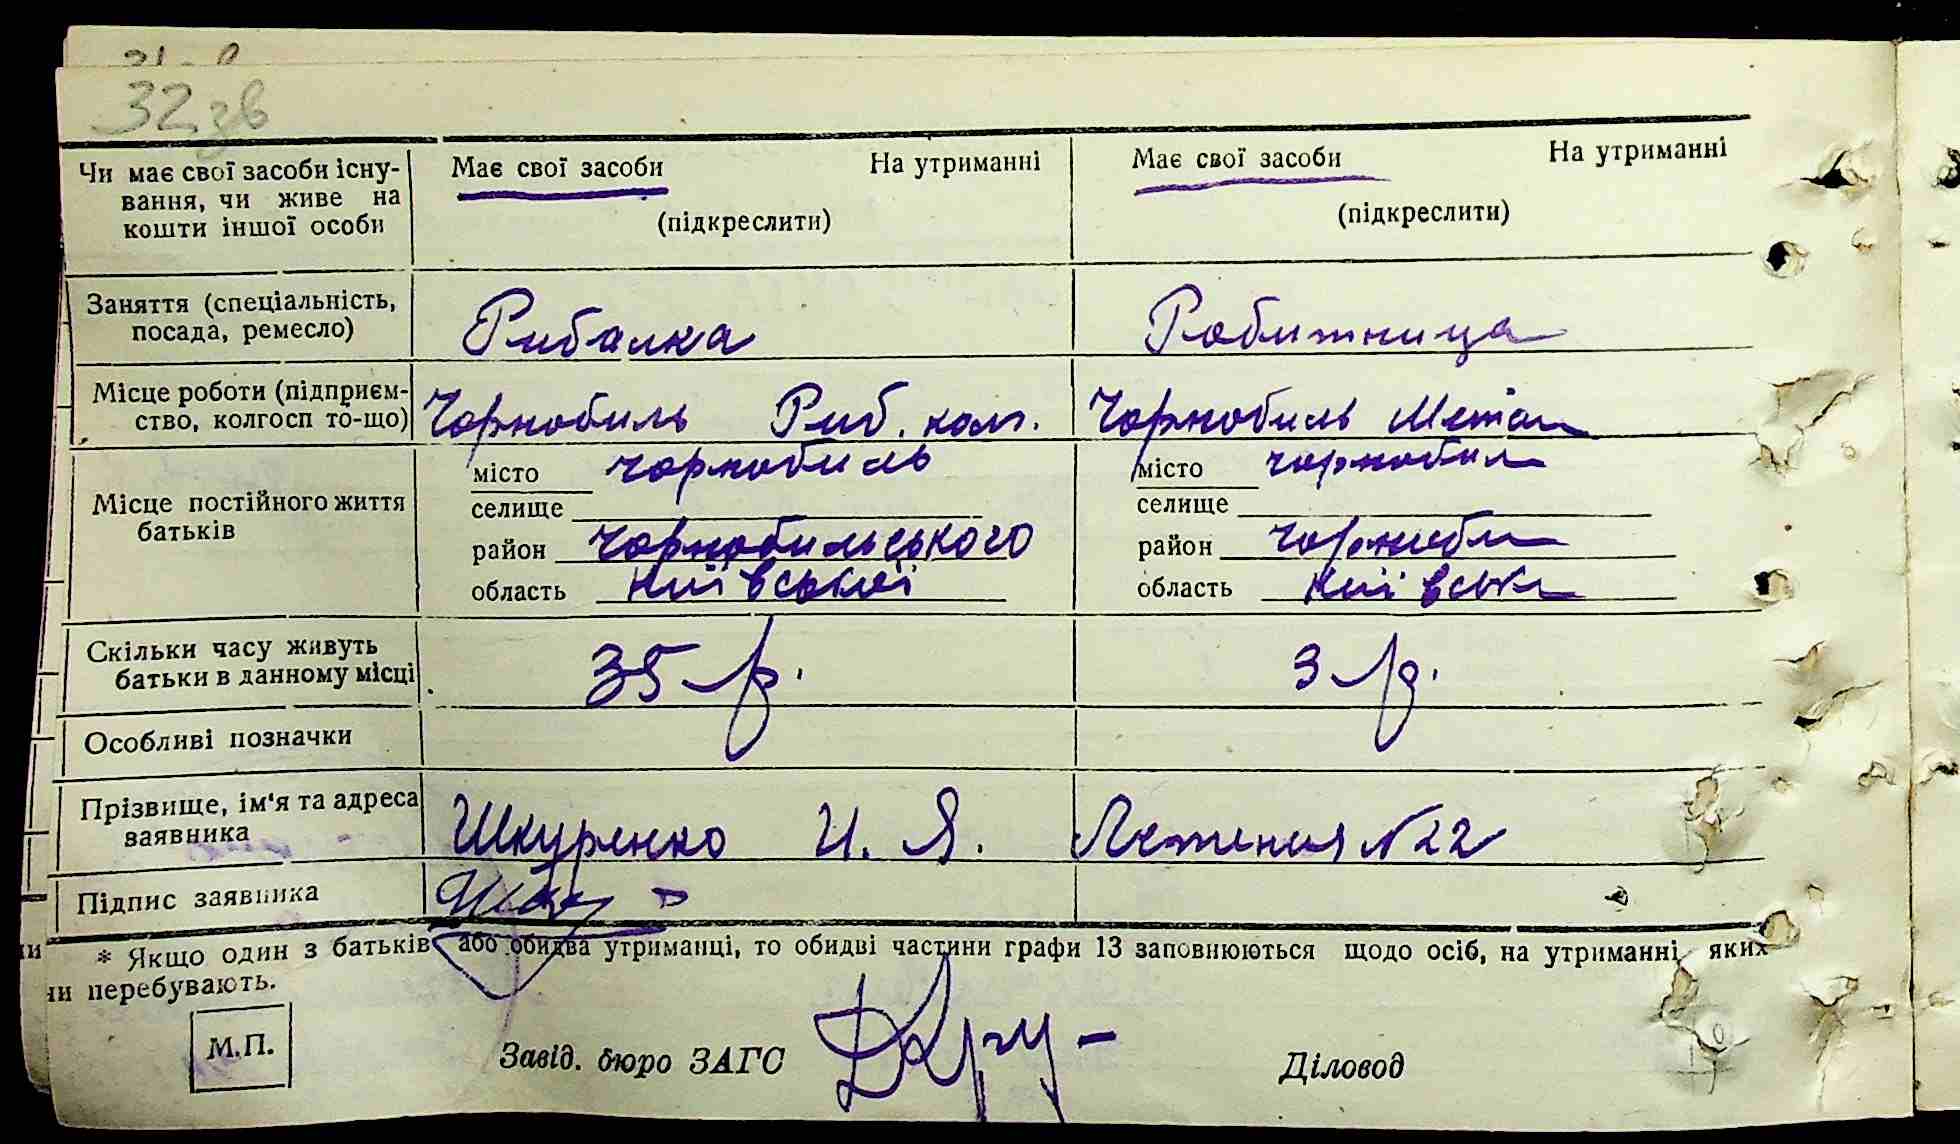 32зв
Чи має свої засоби існу-
вання, чи живе на
кошти іншої особи
Має свої засоби На утриманні
(підкреслити)
Має свої засоби На утриманні
(підкреслити)
Заняття (спеціальність,
посада, ремесло)
Рибалка
Робітница
Місце роботи (підприєм-
ство, колгосп то-що)
Чорнобиль Риб. колг.
Чорнобиль Метал
Місце постійного життя
батьків
місто чорнобиль
селище
район чорнобильського
область київської
місто чорнобил
селище
район чорноби
область київськ
Скільки часу живуть
батьки в данному місці
35 р.
3 р.
Особливі позначки
Прізвище, ім'я та адреса
заявника
Шкуренко И. Я.
№ 22
Підпис заявника
* Якщо один з батьків або обидва утриманці, то обидві частини графи 13 заповнюються щодо осіб, на утриманні яких
ни перебувають.
М.П.
Завід. бюро ЗАГС
Діловод